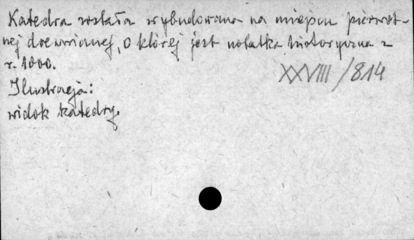 Katedra została wybudowana na miejscu pierwot-
nej drewnianej, o której jest notatka historyczna z
r. 1000.
XXVIII/814
Ilustracja:
widok katedry.